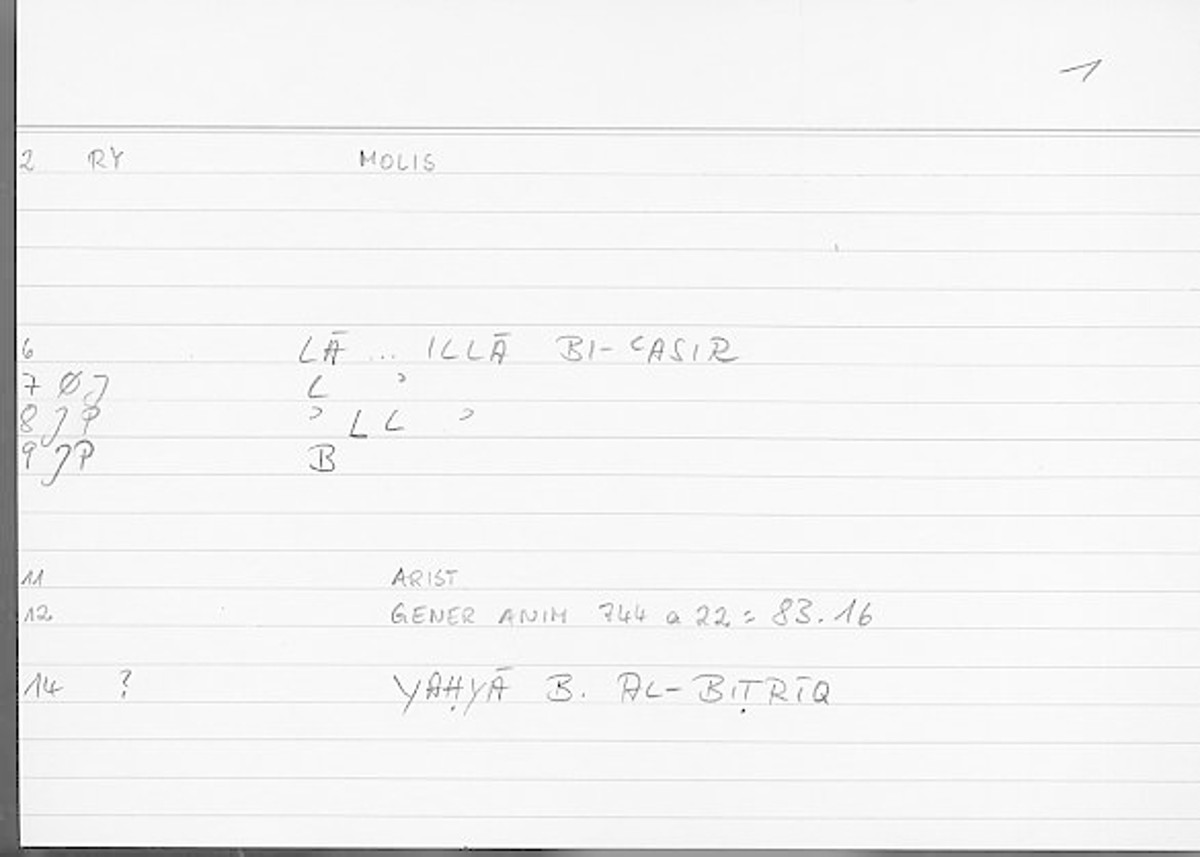 1
2 RY MOLIS
6 LĀ ... ILLĀ BI-ʿASIR
7 Ø J L ʾ
8 J P ʾ L L ʾ
9 J P B
11 ARIST
12 GENER ANIM 744 a 22 = 83.16
14 ? YAḤYĀ B. AL-BIṬRĪQ